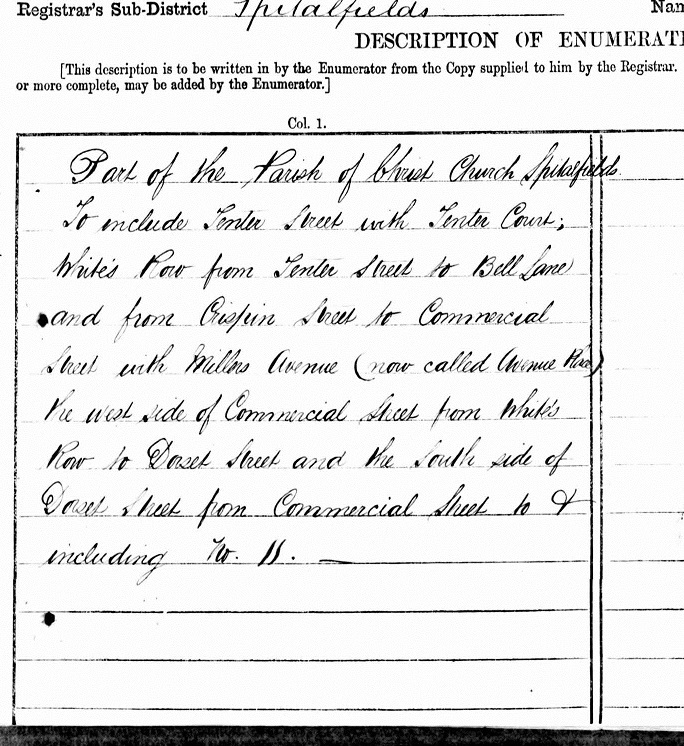 Registrar's Sub-District Spitalfields Nam
DESCRIPTION OF ENUMERATI
[This description is to be written in by the Enumerator from the Copy supplied to him by the Registrar.
or more complete, may be added by the Enumerator.]
Col. 1.
Part of the Parish of Christ Church Spitalfields
To include Tenter Street with Tenter Court;
White's Row from Tenter Street to Bell Lane
and from Crispin Street to Commercial
Street with Millers Avenue (now called Avenue Place)
the west side of Commercial Street from White's
Row to Dorset Street and the South side of
Dorset Street from Commercial Street to &
including No. 11. —